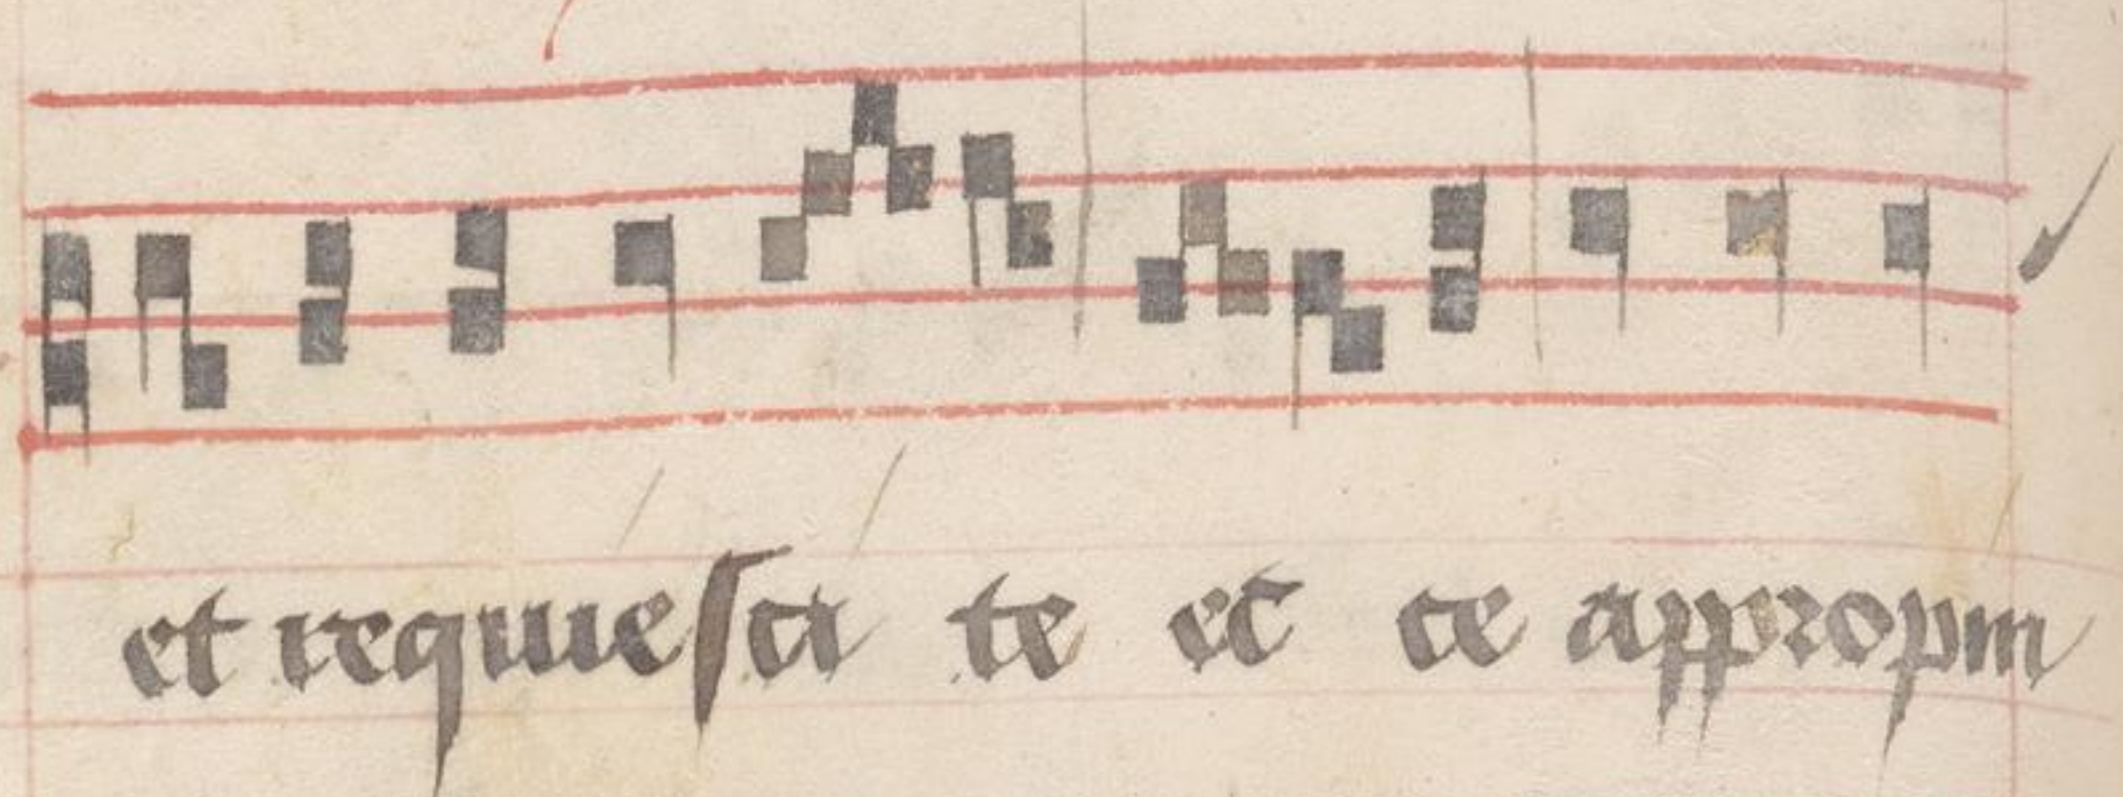 et requiesci te ec̄ ce appropin